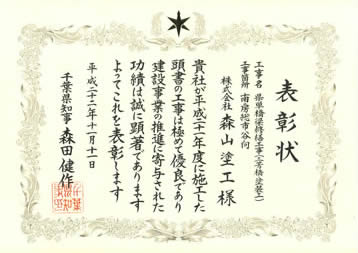 表彰状
工事名 県単橋梁修繕工事(三芳橋塗装工)
工事箇所 南房総市谷向
株式会社 森山塗工様
貴社が平成二十一年度に施工した
頭書の工事は極めて優良であり
建設事業の推進に寄与された
功績は誠に顕著であります
よってこれを表彰します
平成二十二年十一月十一日
千葉県知事 森田健作